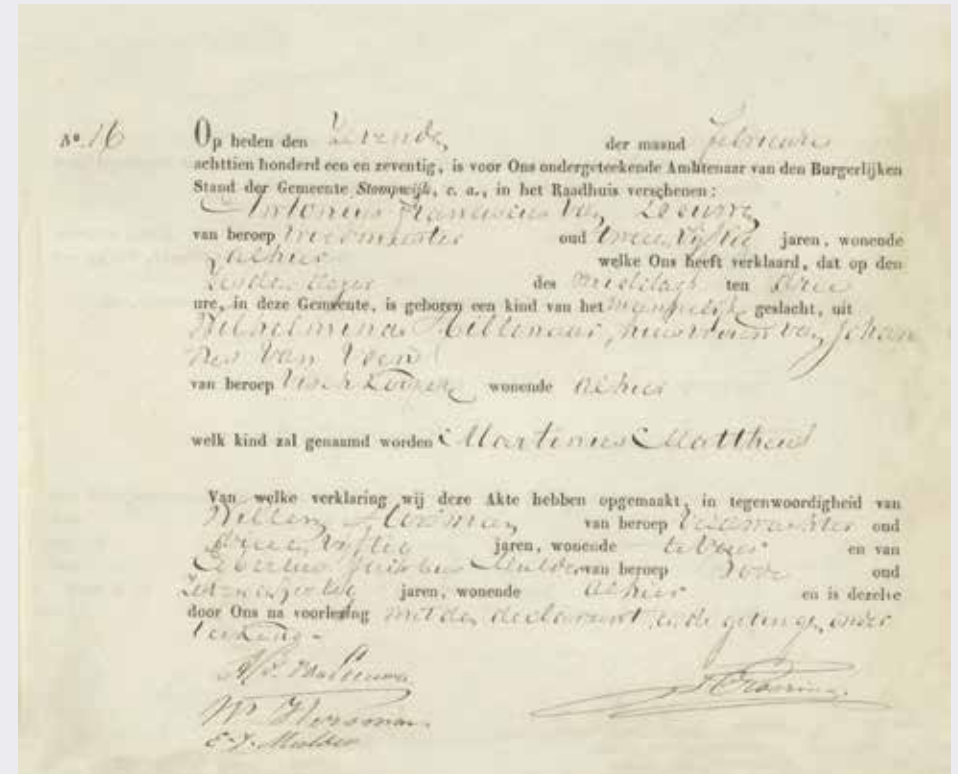 N° 16 Op heden den zevenden der maand februari
achttien honderd een en zeventig, is voor Ons ondergeteekende Ambtenaar van den Burgerlijken
Stand der Gemeente Stompwijk, c. a., in het Raadhuis verschenen:
Antonius Franciscus van Leeuwen
van beroep oud jaren, wonende
alhier welke Ons heeft verklaard, dat op den
des middags ten drie
ure, in deze Gemeente, is geboren een kind van het mannelijk geslacht, uit
Wilhelmina huisvrouw van Johan
nes van Veen
van beroep wonende alhier
welk kind zal genaamd worden Martinus Mattheus
Van welke verklaring wij deze Akte hebben opgemaakt, in tegenwoordigheid van
Willem Horsman van beroep oud
jaren, wonende en van
Mulder van beroep oud
jaren, wonende alhier en is dezelve
door Ons na voorlezing met den declarant en de getuigen onder
teekend.
van Leeuwen
W Horsman.
E. J. Mulder